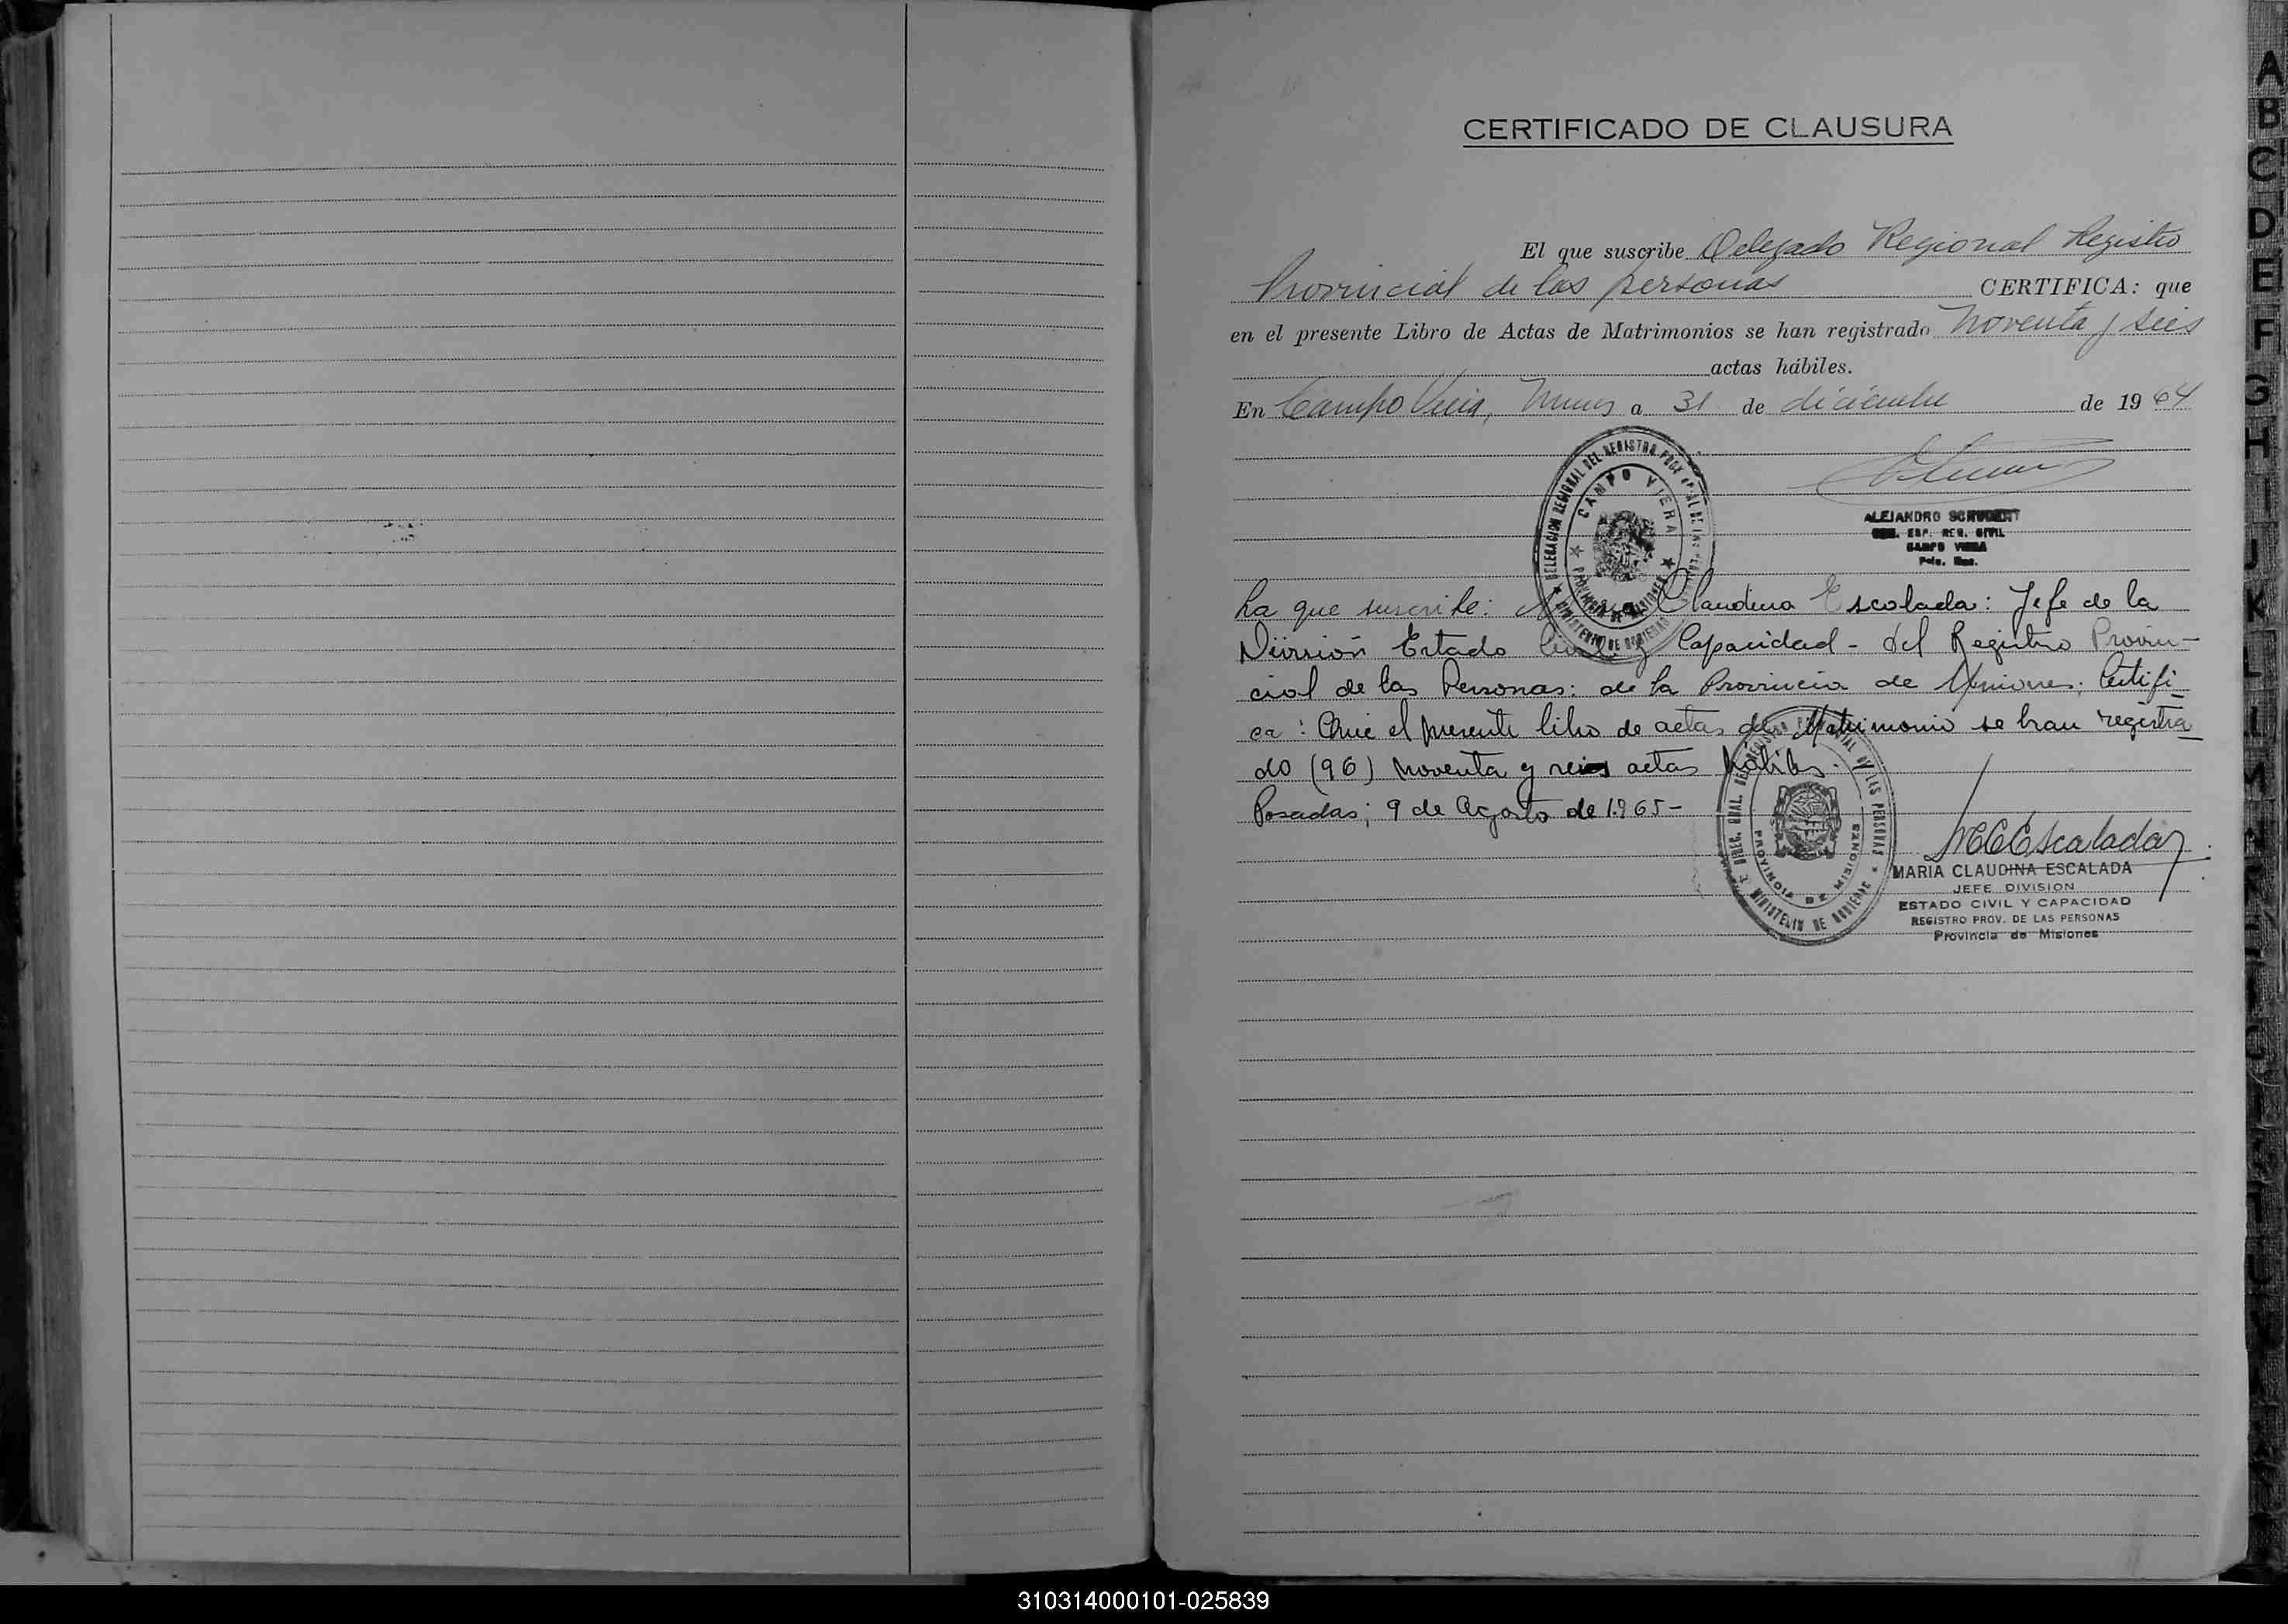 CERTIFICADO DE CLAUSURA
El que suscribe Delegado Regional Registro
Provincial de las personas CERTIFICA: que
en el presente Libro de Actas de Matrimonios se han registrado noventa y seis
actas hábiles.
En Campo Viera, a 31 de diciembre de 1964
DELEGACION REGIONAL DEL REGISTRO PROVINCIAL DE LAS PERSONAS
CAMPO VIERA
PROVINCIA DE MISIONES
MINISTERIO DE GOBIERNO
ALEJANDRO SCHUBERT
REG. CIVIL
CAMPO VIERA
La que suscribe: Claudina Escalada: Jefe de la
División Estado Civil y Capacidad - del Registro Provin-
cial de las Personas: de la Provincia de Misiones; Certifi-
ca: Que el presente libro de actas de Matrimonio se han registra-
do (96) noventa y seis actas hábiles.
Posadas; 9 de Agosto de 1965-
PROVINCIA DE MISIONES
MINISTERIO DE GOBIERNO
MCEscalada
MARIA CLAUDINA ESCALADA
JEFE DIVISION
ESTADO CIVIL Y CAPACIDAD
REGISTRO PROV. DE LAS PERSONAS
Provincia de Misiones
A
B
C
D
E
F
G
H
I
J
K
L
M
310314000101-025839